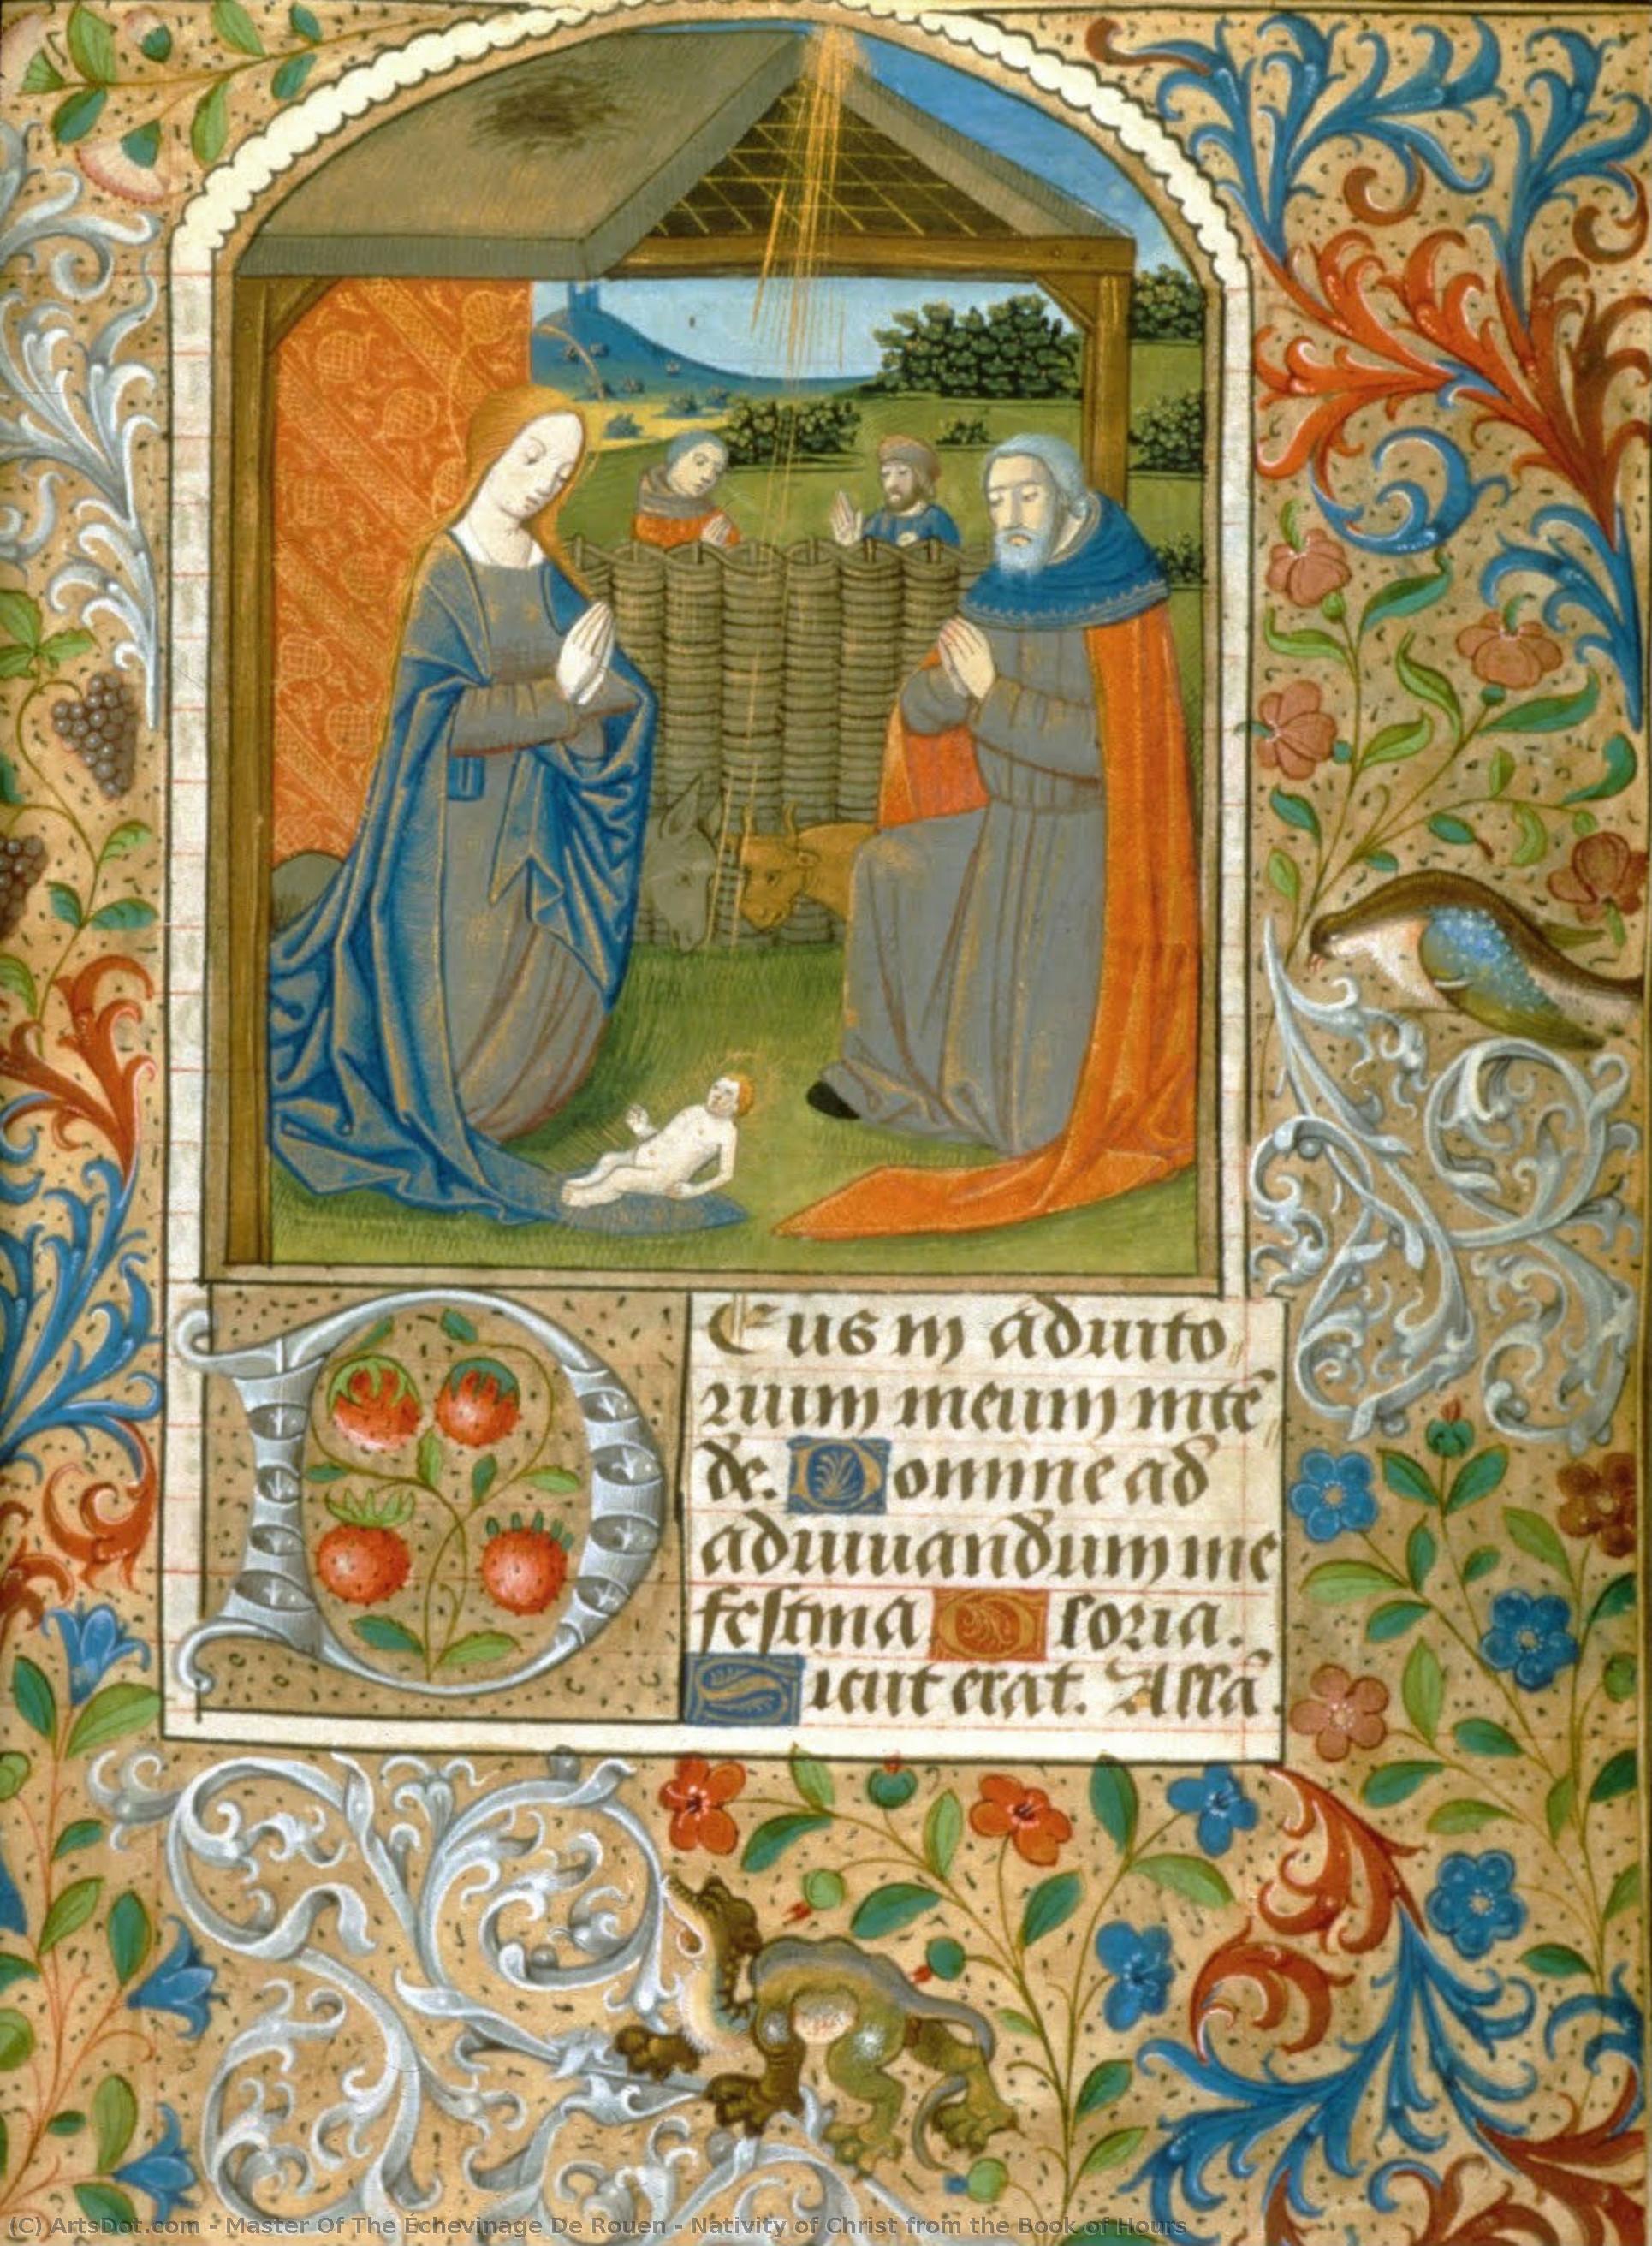 Deus in adiuto
rium meum inte͂
de. Domine ad
adiuuandum me
festina Gloria.
Sicut erat. Assa͂.
(C) ArtsDot.com - Master Of The Échevinage De Rouen - Nativity of Christ from the Book of Hours